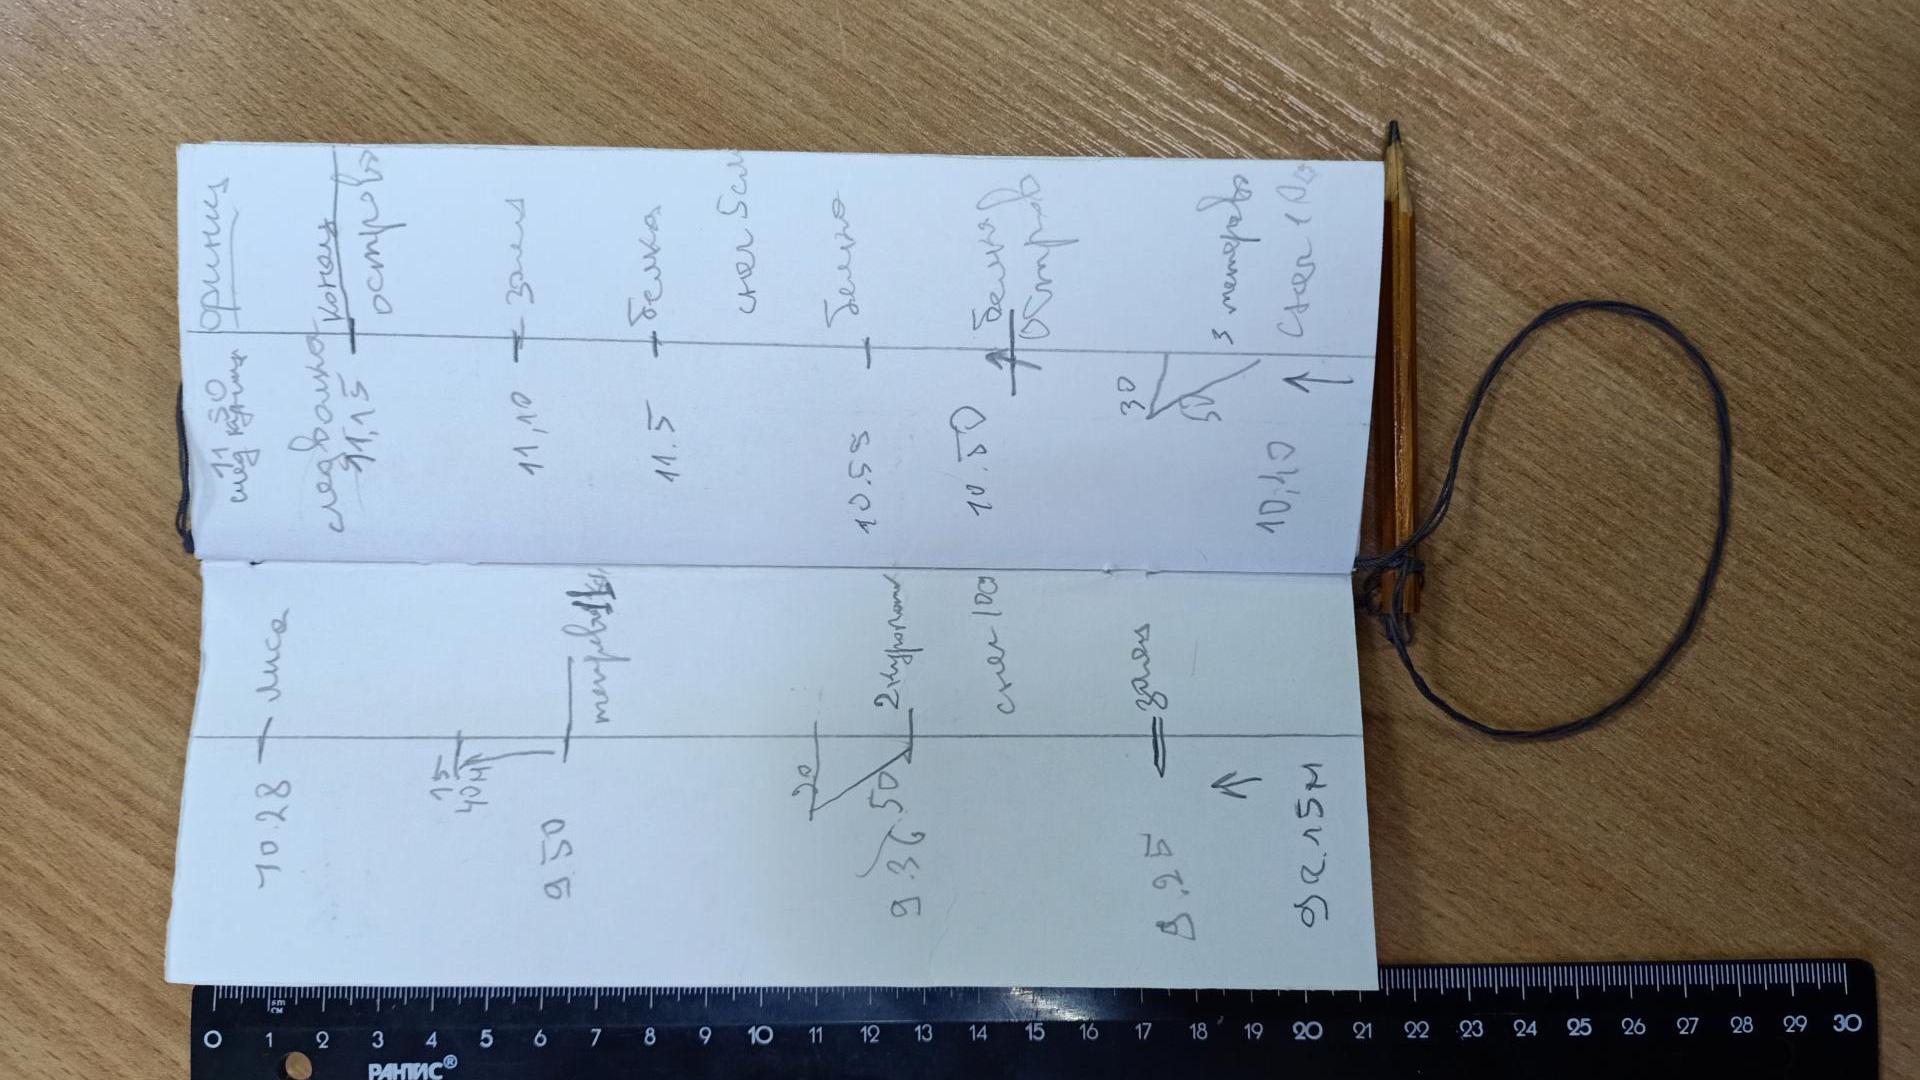 11 30
след куница
Ориниц
след волка
конец
11,15
остров
11,10
заяц
11.5
белка
снег 5см
10.55
белка
10.50
белка
остров
30
50
3 тетерева
10,40
снег
10.28
лиса
15
40м
9 50
тетерев
20
50
2 куропат
9.36
снег 100
9.25
заяц
9 ч. 15м
0 1 2 3 4 5 6 7 8 9 10 11 12 13 14 15 16 17 18 19 20 21 22 23 24 25 26 27 28 29 30
sm
см
РАНТИС®